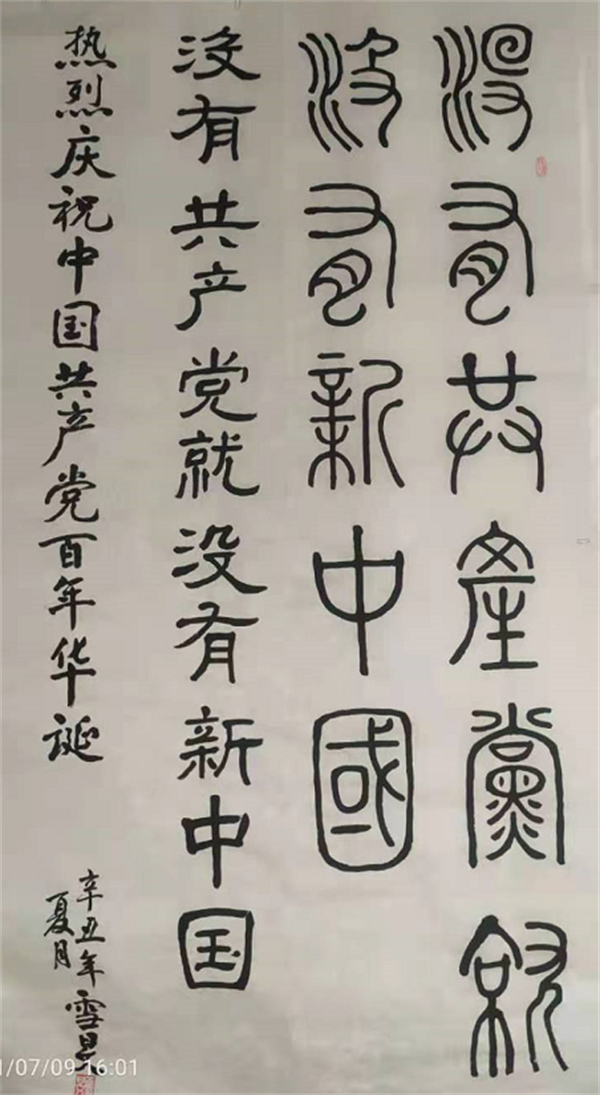 没有共產黨就
没有新中國
没有共产党就没有新中国
热烈庆祝中国共产党百年华诞
辛丑年
夏月
雪
1/07/09 16:01